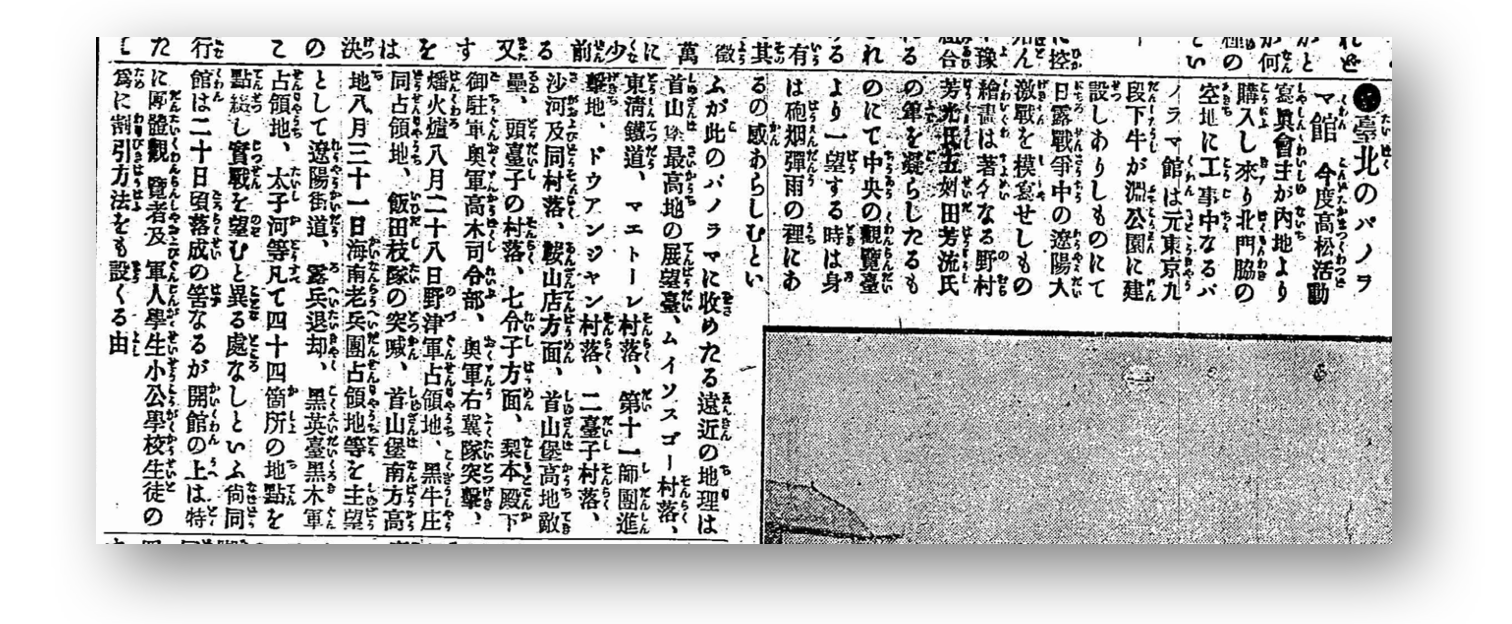 ●臺北のパノラ
マ館　今度高松活動
寫眞會主が内地より
購入し來り北門脇の
空地に工事中なるパ
ノラマ館は元東京九
段下牛が淵公園に建
設しありしものにて
日露戰爭中の遼陽大
激戰を模寫せしもの
繪畫は著名なる野村
芳光氏五姓田芳流氏
の筆を凝らしたるも
のにて中央の觀覽臺
より一望する時は身
は砲烟彈雨の裡にあ
るの感あらしむとい
ふが此のパノラマに收めたる遠近の地理は
首山堡最高地の展望臺、ムイソスゴー村落、
東淸鐵道、マエトーレ村落、第十一師團進
擊地、ドウアンジャン村落、二臺子村落、
沙河及同村落、鞍山店方面、首山堡高地敵
壘、頭臺子の村落、七令子方面、梨本殿下
御駐軍奥軍高木司令部、奥軍右翼隊突擊、
燔火爐八月二十八日野津軍占領地、黑牛庄
同占領地、飯田枝隊の突喊、首山堡南方高
地八月三十一日海南老兵團占領地等を主望
として遼陽街道、露兵退却、黑英臺黑木軍
占領地、太子河等凡て四十四箇所の地點を
點綴し實戰を望むと異る處なしといふ尙同
館は二十日頃落成の筈なるが開館の上は特
に團體觀覽者及軍人學生小公學校生徒の
爲に割引方法をも設くる由